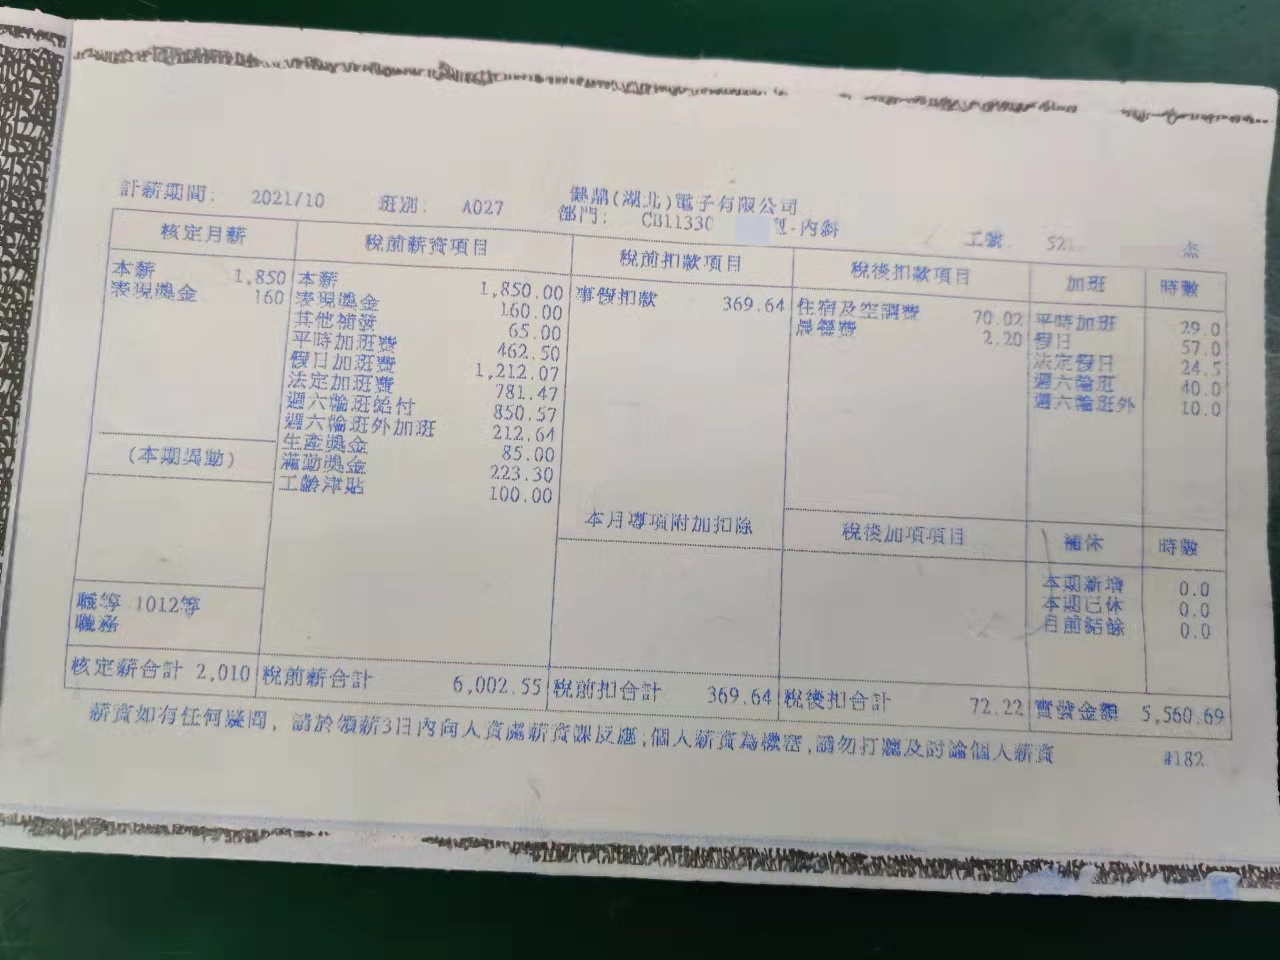 計薪期間: 2021/10 班別: A027 健鼎(湖北)電子有限公司
部門: CB11330 -內斜 工號 52 杰
核定月薪 稅前薪資項目 稅前扣款項目 稅後扣款項目 加班 時數
本薪 1,850 本薪 1,850.00 事假扣款 369.64 住宿及空調費 70.02 平時加班 29.0
表現獎金 160 表現獎金 160.00 晨餐費 2.20 假日 57.0
其他補發 65.00 法定假日 24.5
平時加班費 462.50 週六輪班 40.0
假日加班費 1,212.07 週六輪班外 10.0
法定加班費 781.47
週六輪班給付 850.57
週六輪班外加班 212.64
生產獎金 85.00
滿勤獎金 223.30
工齡津貼 100.00
(本期異動)
本月專項附加扣除 稅後加項項目 補休 時數
本期新增 0.0
本期已休 0.0
目前結餘 0.0
職等 1012等
職務
核定薪合計 2,010 稅前薪合計 6,002.55 稅前扣合計 369.64 稅後扣合計 72.22 實發金額 5,560.69
薪資如有任何疑問, 請於領薪3日內向人資處薪資課反應,個人薪資為機密,請勿打聽及討論個人薪資 #182